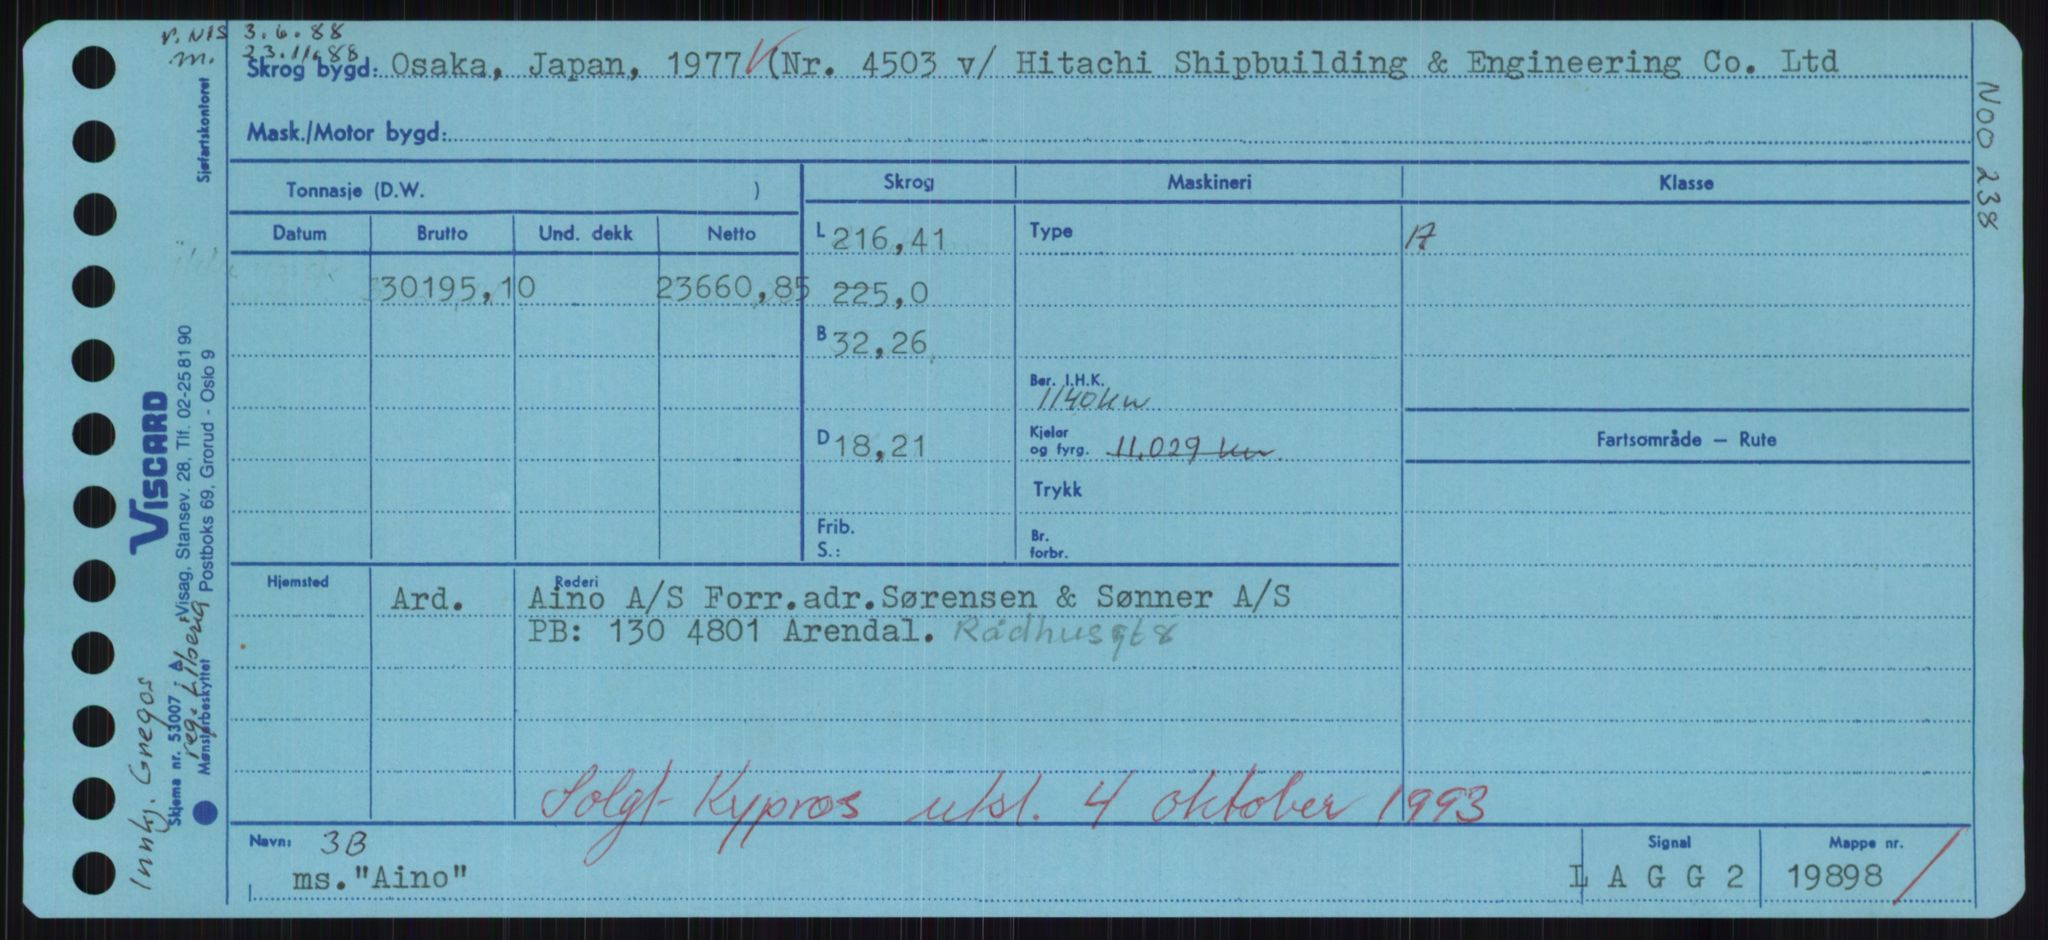 r. NIS 3.6.88
m. 23.11.88
Skrog bygd: Osaka, Japan, 1977 (Nr. 4503 v/ Hitachi Shipbuilding & Engineering Co. Ltd
Mask./Motor bygd:
Tonnasje (D.W. )
Skrog Maskineri Klasse
Datum Brutto Und. dekk Netto
L 216,41 Type A
30195,10 23660,85 225,0
B 32,26
Ber. I.H.K.
1140 kw
D 18,21
Kjeler
og fyrg. 11,029 kw
Fartsområde — Rute
Trykk
Frib.
S.:
Br.
forbr.
Hjemsted Rederi
Ard. Aino A/S Forr.adr.Sørensen & Sønner A/S
PB: 130 4801 Arendal. Rådhusgt 8
Solgt Kypros utsl. 4 oktober 1993
Navn: 3B
ms."Aino"
Signal
L A G G 2
Mappe nr.
19898
NOO 238
Sjøfartskontoret
VISCARD
Visag, Stansev. 28, Tlf. 02-25 81 90
Postboks 69, Grorud - Oslo 9
Skjema nr. 53007
Mønsterbeskyttet
Innkj.
reg. Liberia